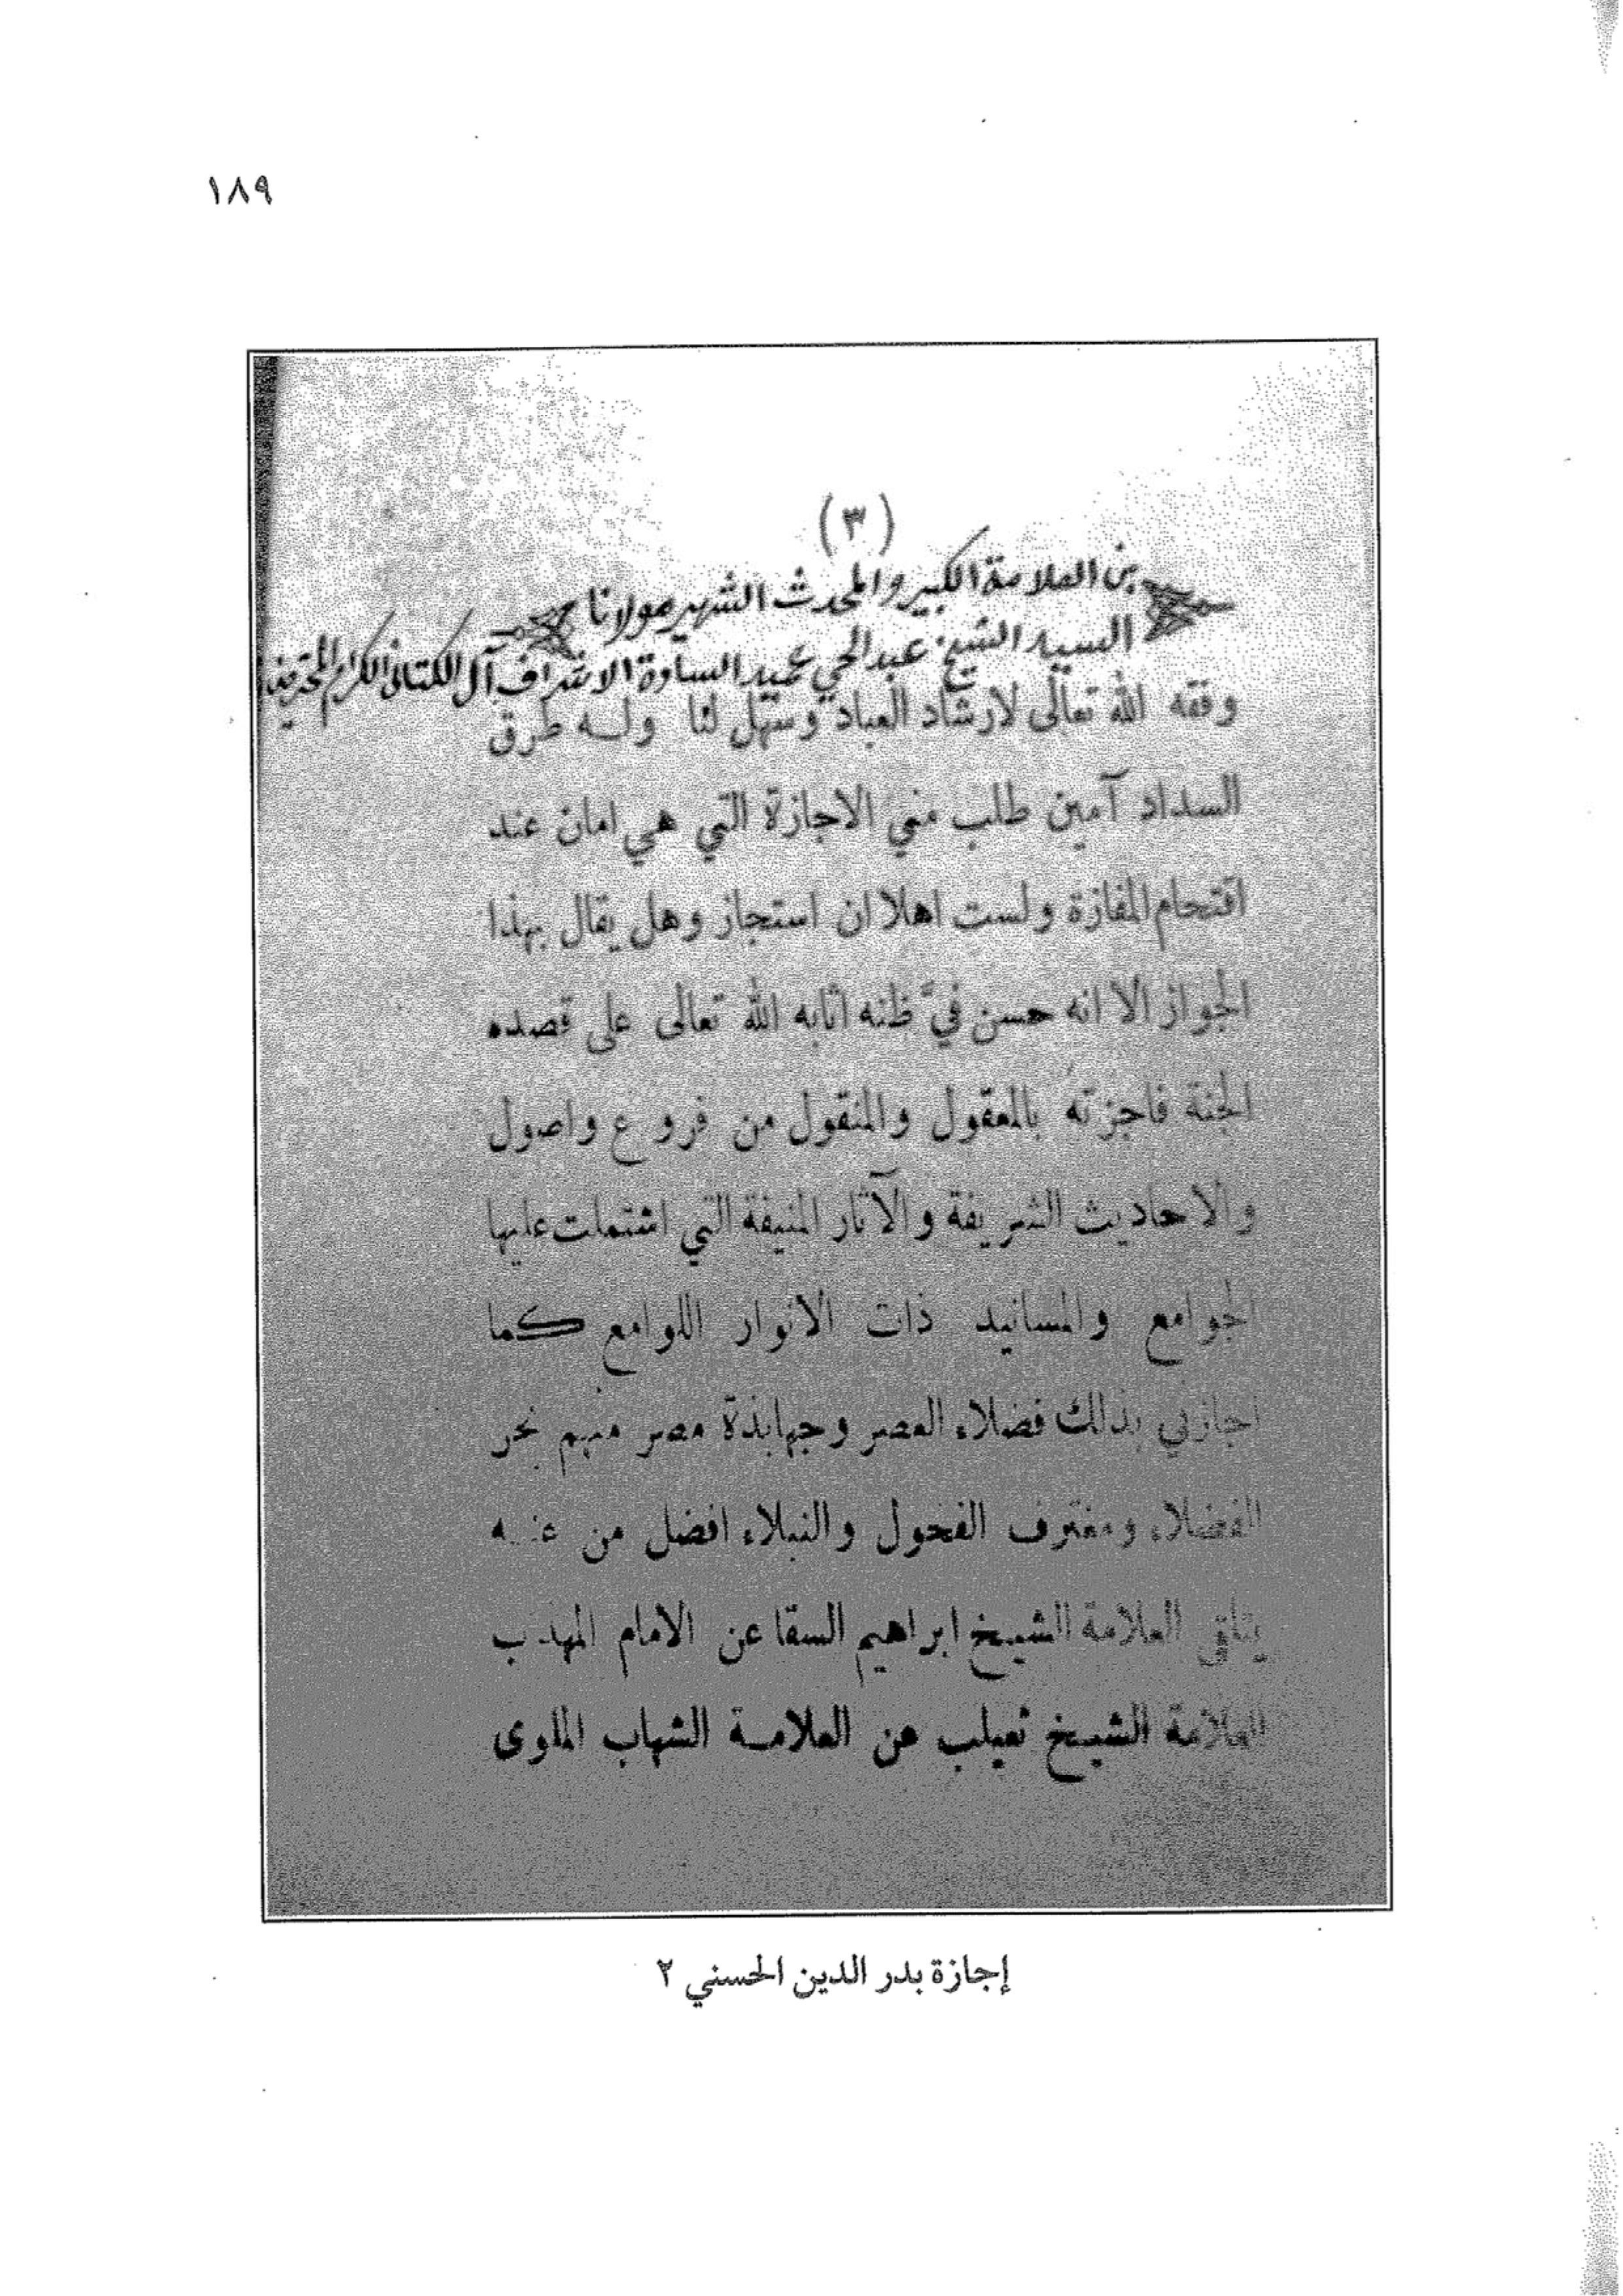 ١٨٩
(٣)
بن العلامة الكبير والمحدث الشهير مولانا
السيد الشيخ عبد الحي عميد السادة الاشراف آل الكتاني الكرام المحترمين
وفقه الله تعالى لارشاد العباد وسهل لنا وله طرق
السداد آمين طلب مني الاجازة التي هي امان عند
اقتحام المفازة ولست اهلا ان استجاز وهل يقال بهذا
الجواز الا انه حسن فيَّ ظنه اثابه الله تعالى على قصده
الجنة فاجزته بالمعقول والمنقول من فروع واصول
والاحاديث الشريفة والآثار المنيفة التي اشتملت عليها
الجوامع والمسانيد ذات الانوار اللوامع كما
اجازني بذلك فضلاء العصر وجهابذة مصر منهم نحر
الفضلاء ومغترف الفحول والنبلاء افضل من عنه
يتلقى العلامة الشيخ ابراهيم السقا عن الامام المهذب
العلامة الشيخ ثعيلب عن العلامة الشهاب الملوى
إجازة بدر الدين الحسني ٢